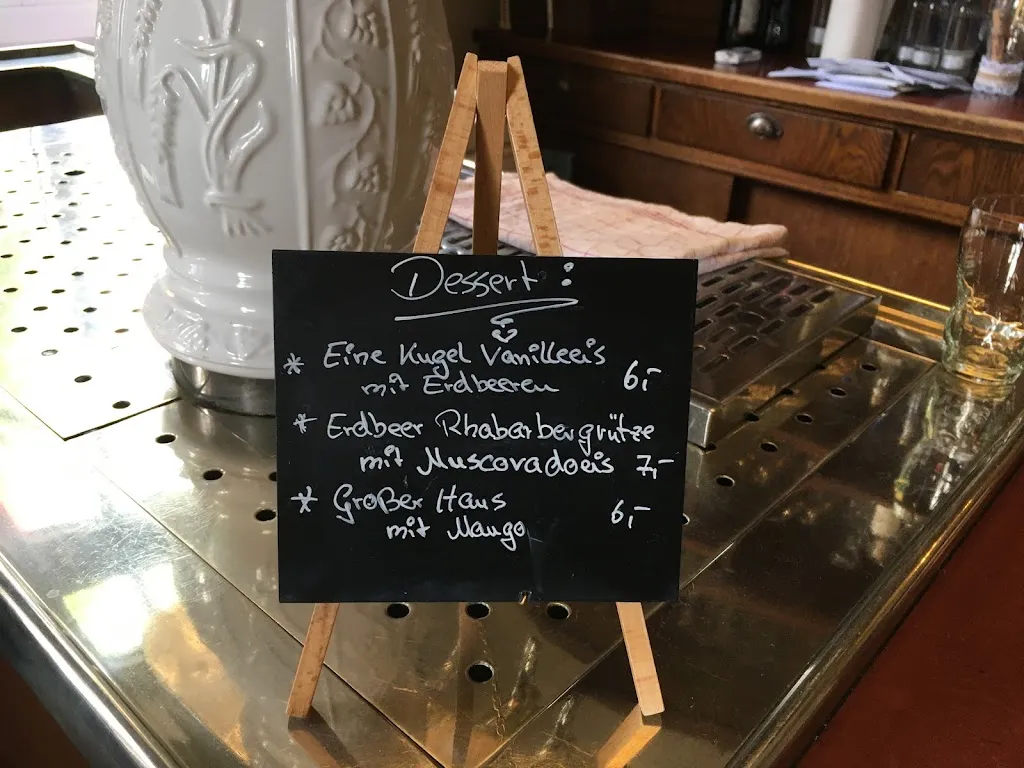 Dessert:
* Eine Kugel Vanilleeis
mit Erdbeeren 6,-
* Erdbeer Rhabarbergrütze
mit Muscovadoeis 7,-
* Großer Haus 6,-
mit Mango